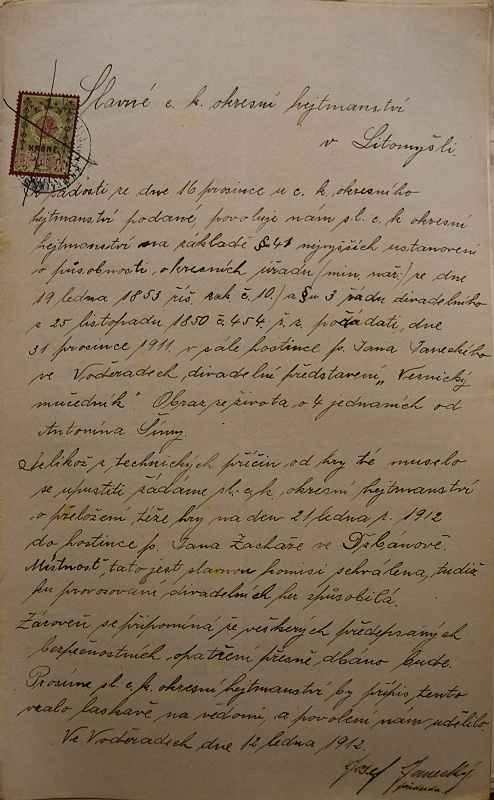 KRONE
Slavné c. k. okresní hejtmanství
v Litomyšli.
V žádosti ze dne 16 prosince u c. k. okresního
hejtmanství podané, povoluje nám sl. c. k. okresní
hejtmanství na základě § 41 nejvyšších ustanovení
o působnosti okresních úřadu /min. nař./ ze dne
19 ledna 1853 říš. zák č. 10./ a § u 3 řádu divadelního
z 25 listopadu 1850 č. 454. ř. z. pořádati, dne
31 prosince 1911. v sále hostince p. Jana Janeckého
ve Voděradech, divadelní představení „Vesnický
mučedník". Obraz ze života o 4 jednaních od
Antonína Šímy.
Jelikož z technických příčin od hry té muselo
se upustiti žádáme sl. c. k. okresní hejtmanství
o přeložení téže hry na den 21 ledna r. 1912
do hostince p. Jana Zachaře ve Džbánově.
Místnost, tato jest slavnou komisí schválena, tudíž
ku provozování divadelních her způsobilá.
Zároveň se připomíná že veškerých předepsaných
bezpečnostních opatření přesně dbáno bude.
Prosíme sl. c. k. okresní hejtmanství by přípis tento
vzalo laskavě na vědomí, a povolení nám udělilo.
Ve Voděradech dne 12 ledna 1912.
Josef Janecký
předseda.